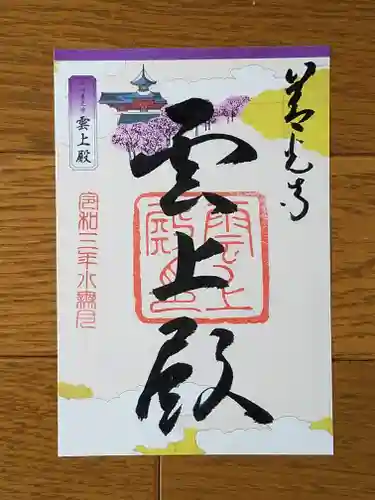 善光寺
雲上殿
雲上殿
令和三年水無月